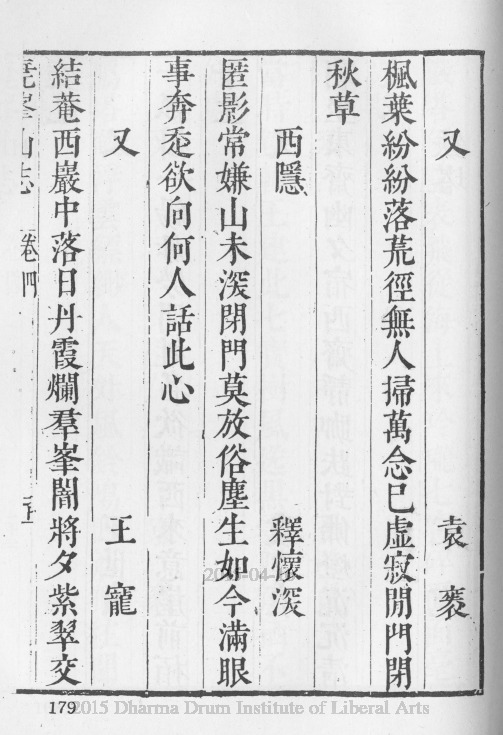 又 袁袠
楓葉紛紛落荒徑無人掃萬念已虛寂閒門閉
秋草
西隱 釋懷湥
匿影常嫌山未湥閉門莫放俗塵生如今滿眼
事奔忩欲向何人話此心
又 王寵
結菴西巖中落日丹霞爛羣峯闇將夕紫翠交
堯峯山志 卷四
179
2015 Dharma Drum Institute of Liberal Arts